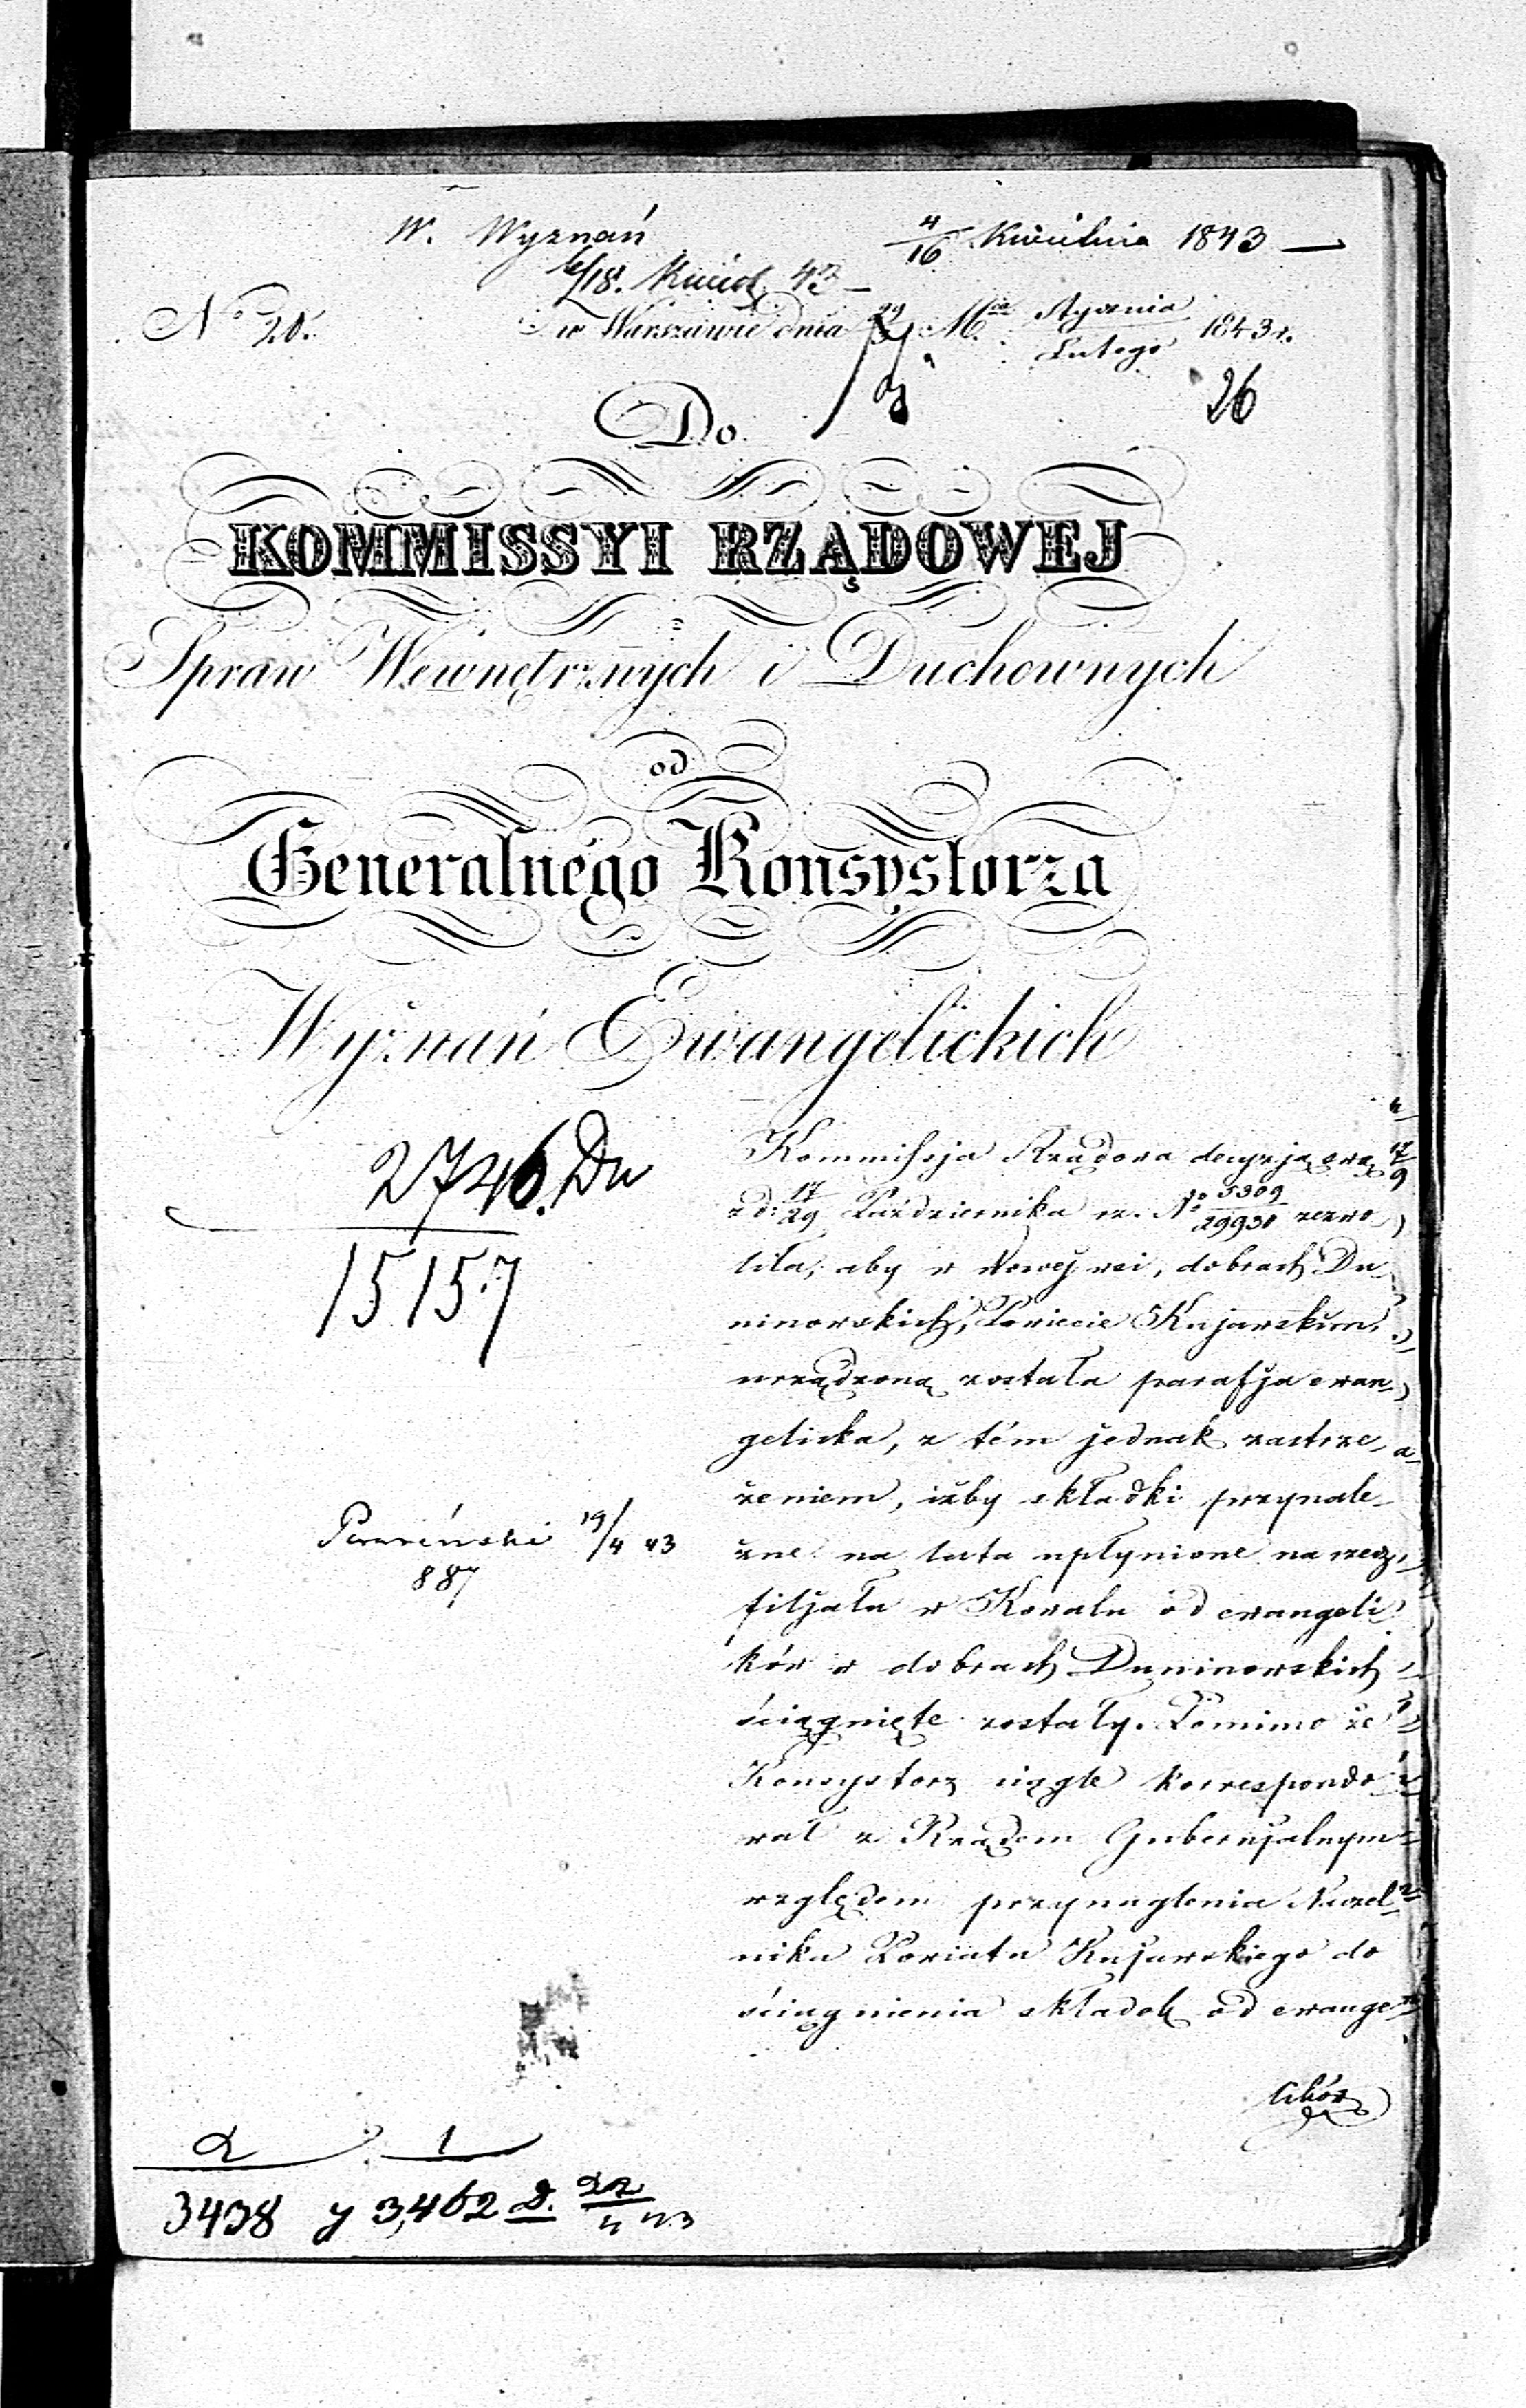 W. Wyznań
4/16 Kwietnia 1843 —
6/18. Kwiet. 43 —
No 20.
w Warszawie dnia 29 Mca Stycznia 1843 r.
Lutego
26
Do
KOMMISSYI RZĄDOWEJ
Spraw Wewnętrznych i Duchownych
od
Generalnego Konsystorza
Wyznań Ewangelickich
2746. Du
15157
Kommissja Rządowa decyzją swą
z d: 17/29 Października r. No 5309/29930 zezwo
liła, aby w Nowej wsi, dobrach Du
ninowskich, Powiecie Kujawskim,
urządzoną została parafja ewan
gelicka, z tém jednak zastrze
żeniem, iżby składki przynale-
żne na lata upłynione na rzecz
filjału w Kowalu od ewangeli
ków w dobrach Duninowskich
ściągnięte zostały. Pomimo że
Konsystorz ciągle korrespondo
wał z Rządem Gubernjalnym
względem przynaglenia Naczel
nika Powiatu Kujawskiego do
ściągnienia składek od ewange
lików
19/4 43
887
2 1
3438 y 3,462 D. 22/4 43